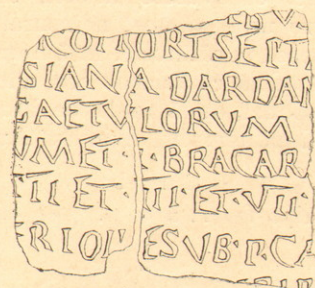 COHORT SEPTI
SIANA DARDAN
GAETVLORVM
VM ET · I · BRACAR
III ET · III · ET · VII ·
ERIOR ESVB · P · CA